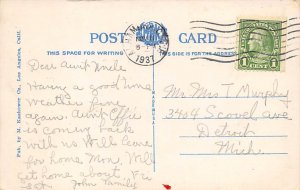 POST CARD
THIS SPACE FOR WRITING
THIS SIDE IS FOR THE ADDRESS
1937
1 CENT 1
Pub. by M. Kashower Co., Los Angeles, Calif.
Dear Aunt Uncle
Having a good time
weather fine
again. Aunt Effie
is coming back
with us Will leave
for home Mon. Will
get home about, Fri
John Family
Mr Mrs T Murphy
3404 Scovel Ave
Detroit
Mich